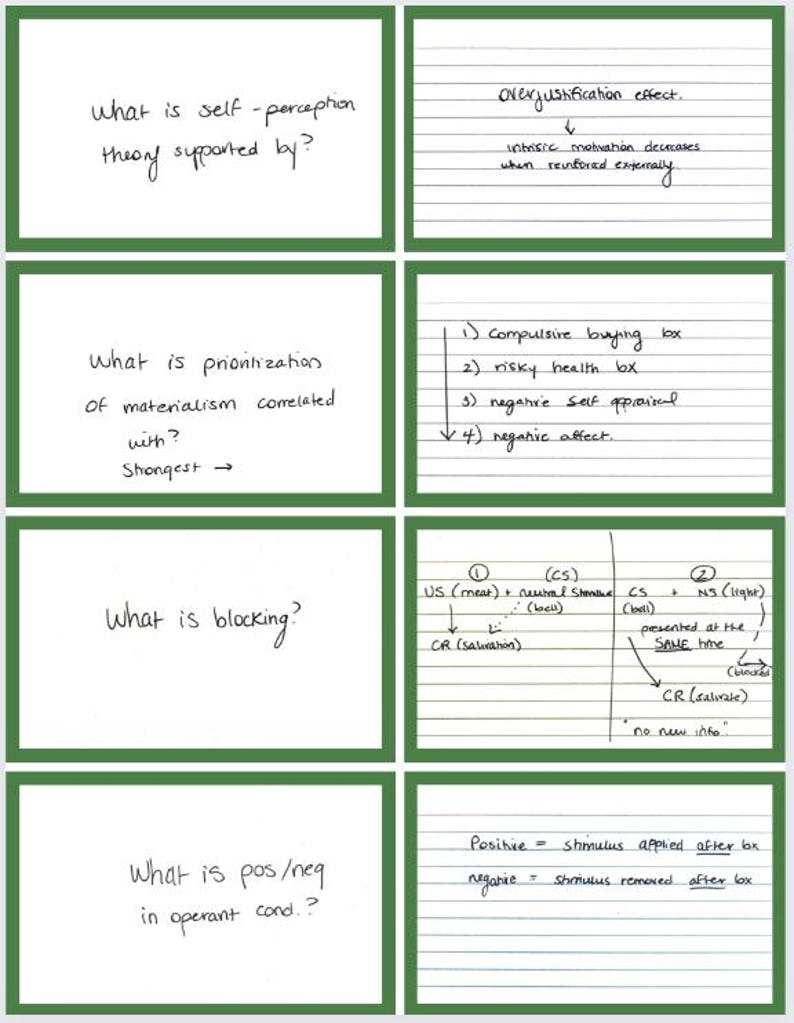 What is self-perception
theory supported by?
Overjustification effect.
↓
intrisic motivation decreases
when reinforced externally.
What is prioritization
of materialism correlated
with?
Strongest →
1) compulsive buying bx
2) risky health bx
3) negative self appraisal
4) negative affect.
What is blocking?
① (CS)
US (meat) + neutral stimulus
(bell)
CR (salivation)
②
CS + NS (light)
(bell)
presented at the
SAME time
(blocked
CR (salivate)
"no new info"
What is pos/neg
in operant cond.?
Positive = stimulus applied after bx
negative = stimulus removed after bx